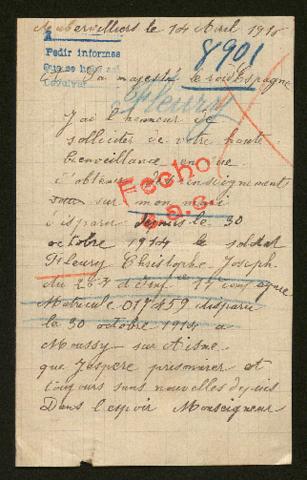 Aubervilliers le 14 Avril 1916
Pedir informes
Que se haga
Devolver
8901
A sa majesté le roi d'Espagne
Fleury
J'ai l'honneur de
solliciter de votre haute
bienveillance en vue
d'obtenir renseignement
sur mon mari
Fecho
a.c.
disparu depuis le 30
octobre 1914 le soldat
Fleury Christophe Joseph
du
Matricule 017459 disparu
le 30 octobre 1914 a
Moussy sur Aisne
que J'espère prisonnier et
toujours sans nouvelles depuis
Dans l'espoir Monseigneur